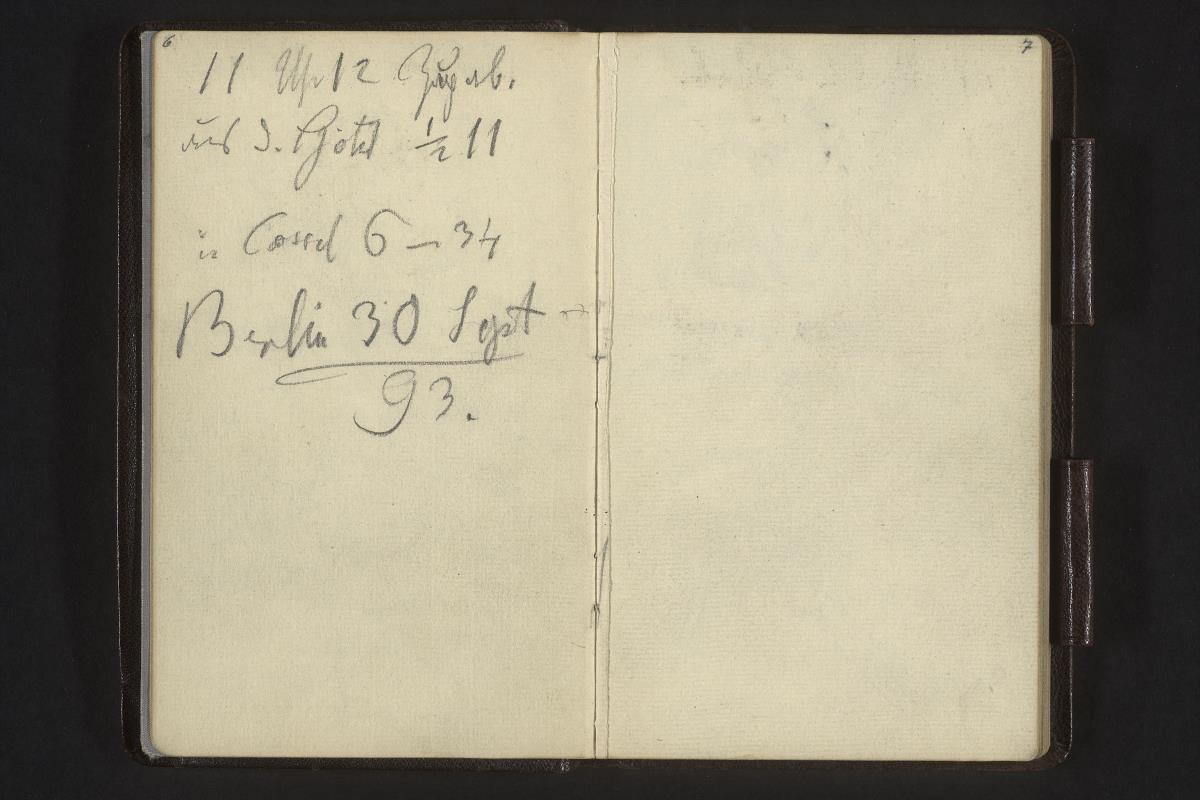 6
11 Uhr 12 Zug ab.
aus d. Hôtel ½ 11
in Cassel 6 — 34
Berlin 30 Sept
93.
7